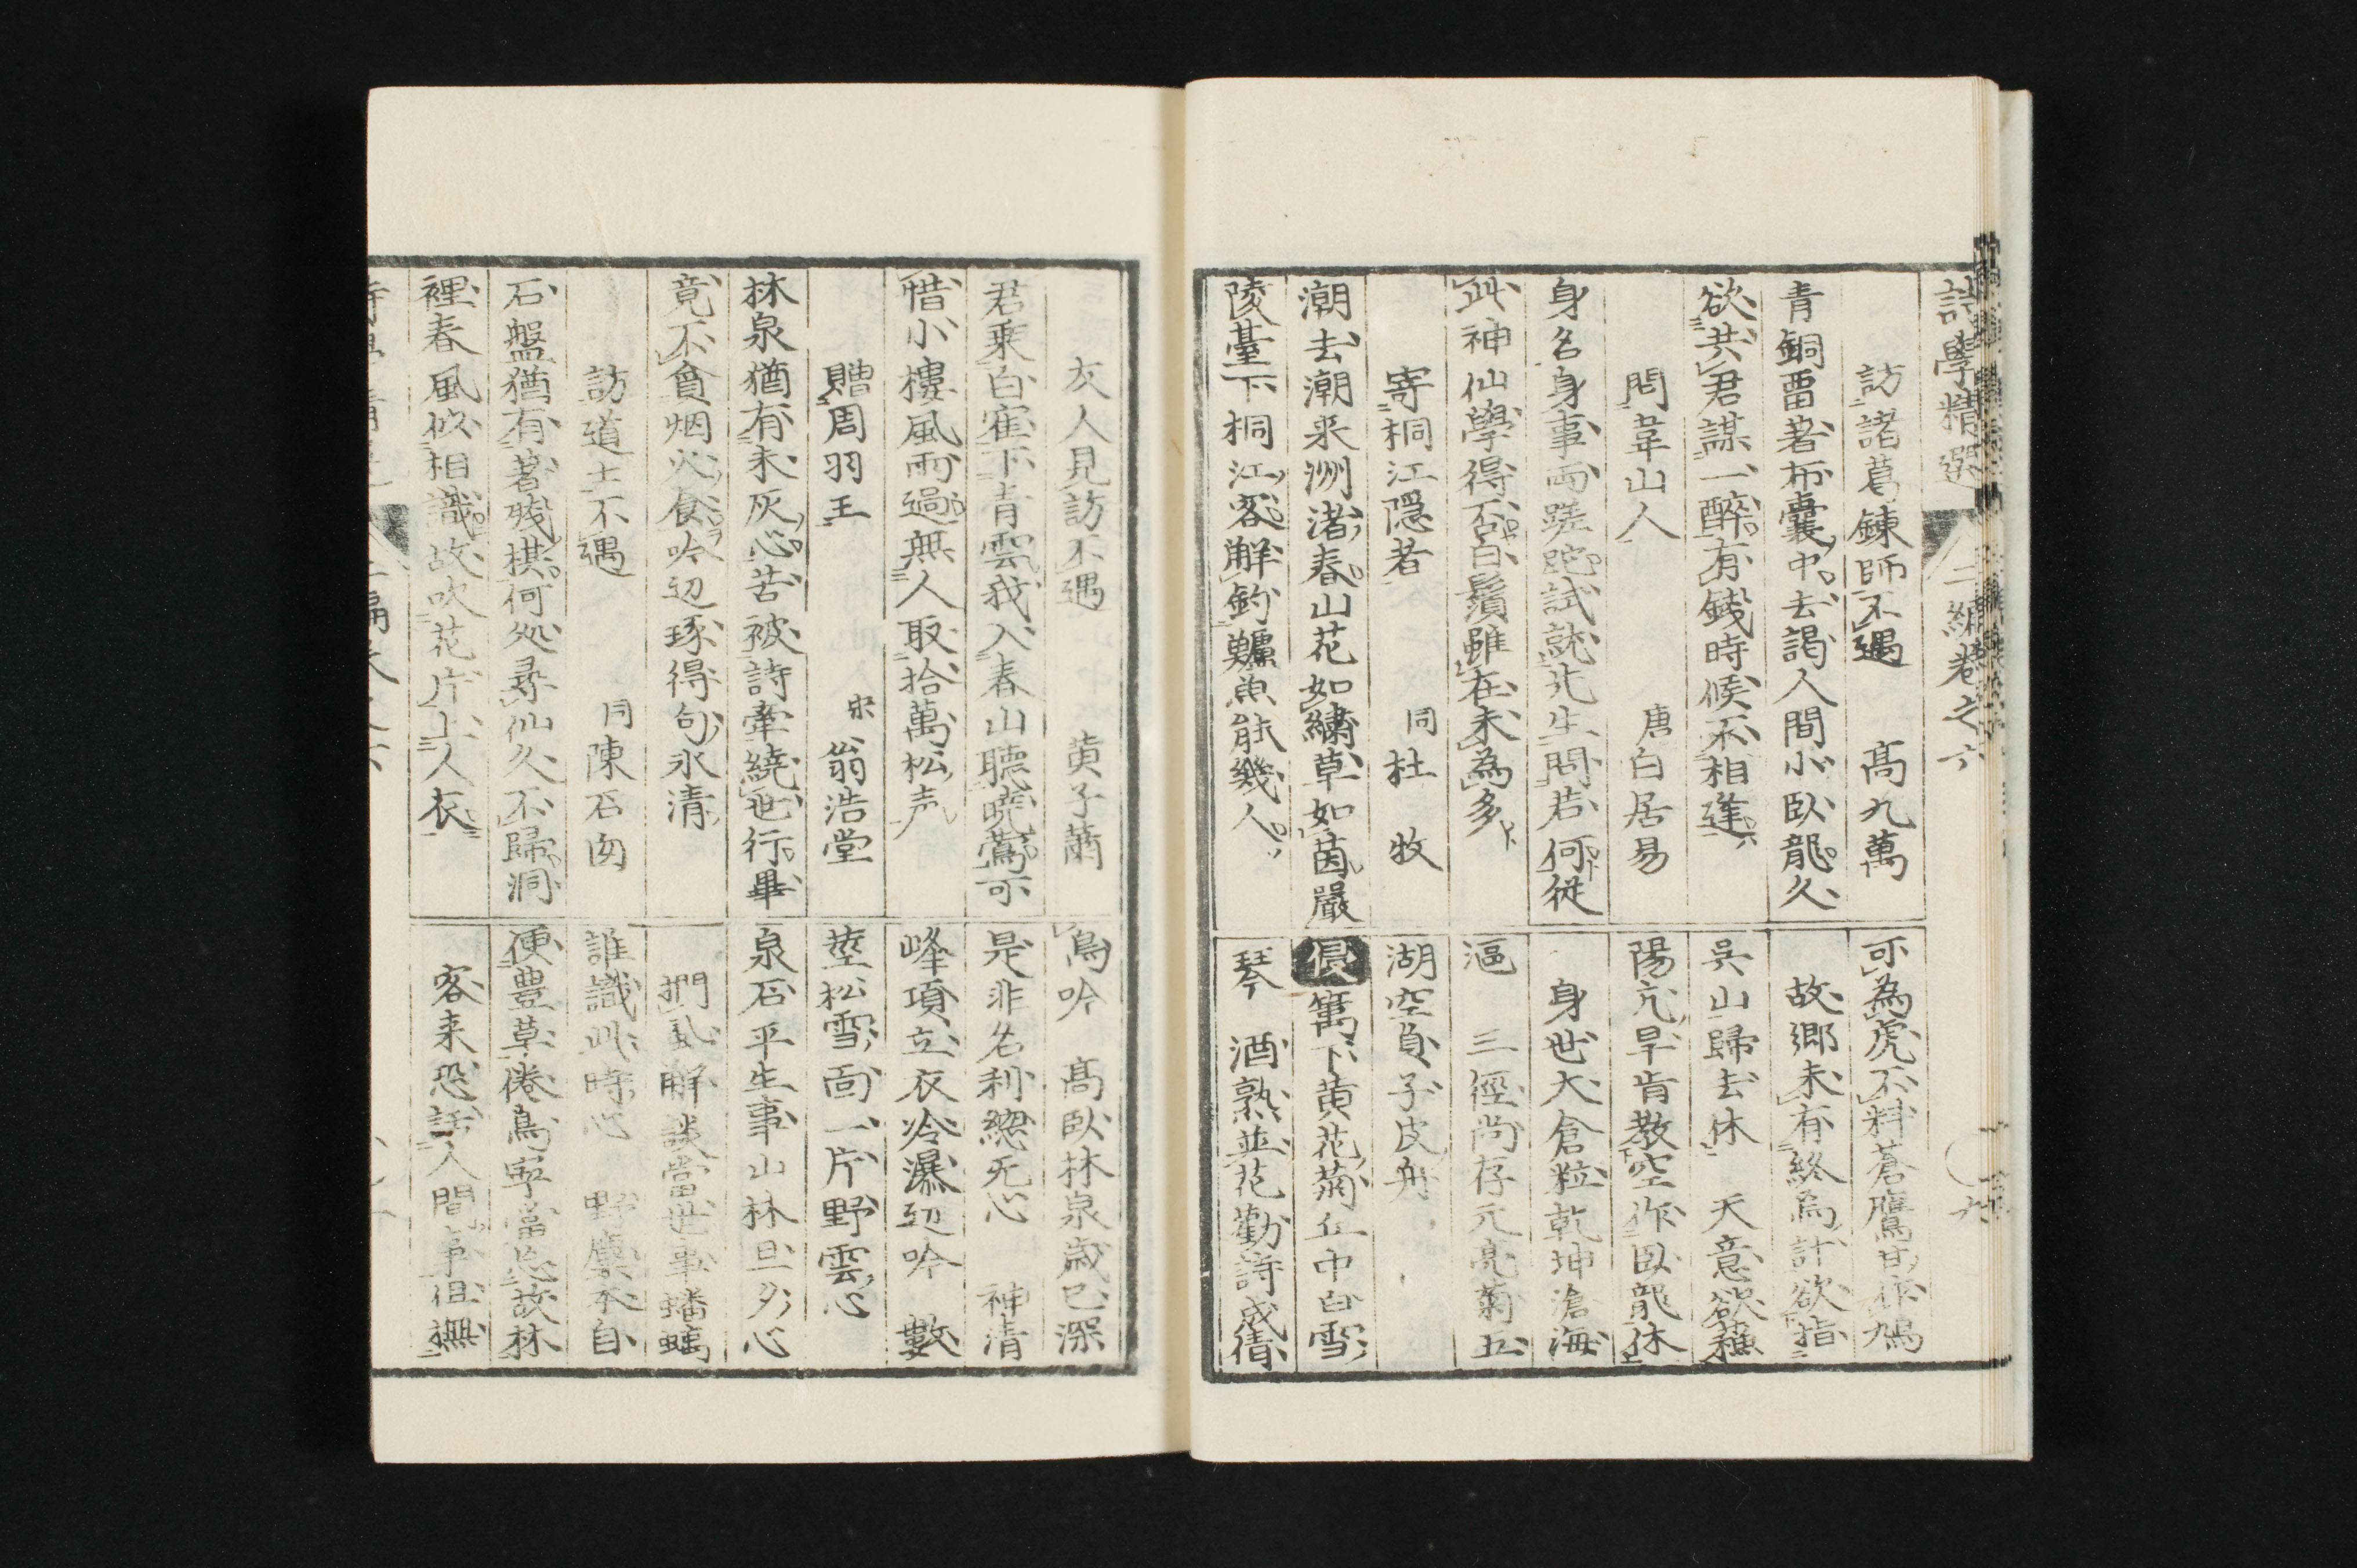 詩學精選 二編卷之六
訪諸葛鍊師不遇 高九萬
青銅畱著布囊中去謁人間小臥龍久
欲共君謀一醉有錢時候不相逢
問韋山人 唐白居易
身名身事両蹉跎試就先生問若何従
此神仙學得否白鬚雖在未為多
寄桐江隠者 同杜牧
潮去潮来洲渚春山花如繍草如茵嚴
陵臺下桐江客解釣鱸魚能幾人
可為虎不料蒼鷹甘作鳩
故郷未有終焉計欲指
呉山歸去休 天意欲蘓
陽亢旱肯教空作臥龍休
身世大倉粒乾坤滄海
漚 三徑尚存元亮菊五
湖空負子皮舟
篱下黄花菊丘中白雪
琴 酒熟並花勸詩成倩
友人見訪不遇 黄子蕭
君乗白寉下青雲我入春山聴暁鶯可
惜小樓風雨過無人取拾萬松声
贈周羽士 宋翁浩堂
林泉猶有未灰心苦被詩牽繞世行畢
竟不貪烟火食吟辺琢得句氷清
訪道士不遇 同陳石
石盤猶有著残棋何処尋仙久不歸洞
裡春風似相識故吹花片上人衣
鳥吟 高臥林泉歳已深
是非名利緫无心 神清
峰頂立衣冷瀑辺吟 數
莖松雪面一片野雲心
泉石平生事山林旦夕心
捫虱解談當世事蟠螭
誰識此時心 野麋本自
便豊草倦鳥寧當忘故林
客来恐話人間事但撫